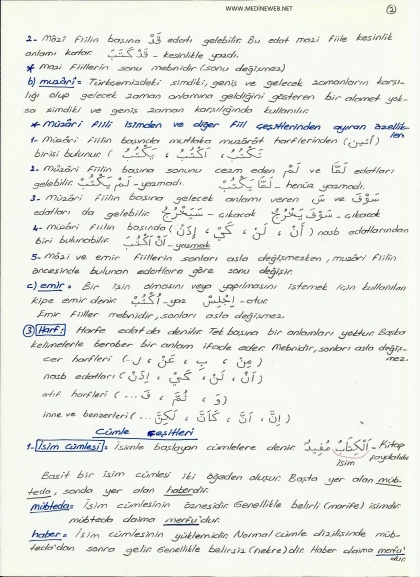 WWW.MEDINEWEB.NET
2
2- Mâzî Fiilin başına قَدْ edatı gelebilir. Bu edat mazi fiile kesinlik
anlamı katar. قَدْ كَتَبَ - kesinlikle yazdı.
* Mazi fiillerin sonu mebnidir (sonu değişmez)
b) muzâri = Türkçemizdeki şimdiki, geniş ve gelecek zamanların karşı-
lığı olup gelecek zaman anlamına geldiğini gösteren bir alamet yok-
sa şimdiki ve geniş zaman karşılığında kullanılır.
* Müzâri fiili isimden ve diğer fiil çeşitlerinden ayıran özellik-
ler
1- Müzâri fiilin başında mutlaka muzârât harflerinden (أتين)
birisi bulunur. (يَكْتُبُ ، أَكْتُبُ ، تَكْتُبُ
2- müzâri fiilin başına sonunu cezm eden لَمْ ve لَمَّا edatları
gelebilir. لَمْ يَكْتُبْ - yazmadı. لَمَّا يَكْتُبْ - henüz yazmadı.
3- müzâri fiilin başına gelecek anlamı veren سَ ve سَوْفَ
edatları da gelebilir. سَيَخْرُجُ - çıkacak سَوْفَ يَخْرُجُ - çıkacak
4- müzâri fiilin başında (أَنْ ، لَنْ ، كَيْ ، إِذَنْ) nasb edatlarından
biri bulunabilir. أَنْ أَكْتُبَ - yazmak
5- Mâzi ve emir fiillerin sonları asla değişmezken, muzâri fiilin
öncesinde bulunan edatlara göre sonu değişir.
c) emir = Bir işin olmasını veya yapılmasını istemek için kullanılan
kipe emir denir. أُكْتُبْ - yaz إِجْلِسْ - otur.
Emir fiiller mebnidir, sonları asla değişmez.
3 Harf: Harfe edat da denilir. Tek başına bir anlamları yoktur. Başka
kelimelerle beraber bir anlam ifade eder. Mebnidir, sonları asla değiş-
mez.
cer harfleri (مِنْ ، بِ ، عَنْ ، لِ...)
nasb edatları (أَنْ ، لَنْ ، كَيْ ، إِذَنْ)
atıf harfleri (وَ ، ثُمَّ ، فَ ...)
inne ve benzerleri (إِنَّ ، أَنَّ ، كَأَنَّ ، لَكِنَّ ...)
Cümle Çeşitleri
1- İsim cümlesi = İsimle başlayan cümlelere denir. اَلْكِتَابُ مُفِيدٌ - Kitap
isim faydalıdır
Basit bir isim cümlesi iki öğeden oluşur. Başta yer alan müb-
teda, sonda yer alan haberdir.
mübteda = İsim cümlesinin öznesidir. Genellikle belirli (marife) isimdir.
mübteda daima merfu'dur.
haber = İsim cümlesinin yüklemidir. Normal cümle dizilisinde müb-
teda'dan sonra gelir. Genellikle belirsiz (nekre)dir. Haber daima merfu'
dur.